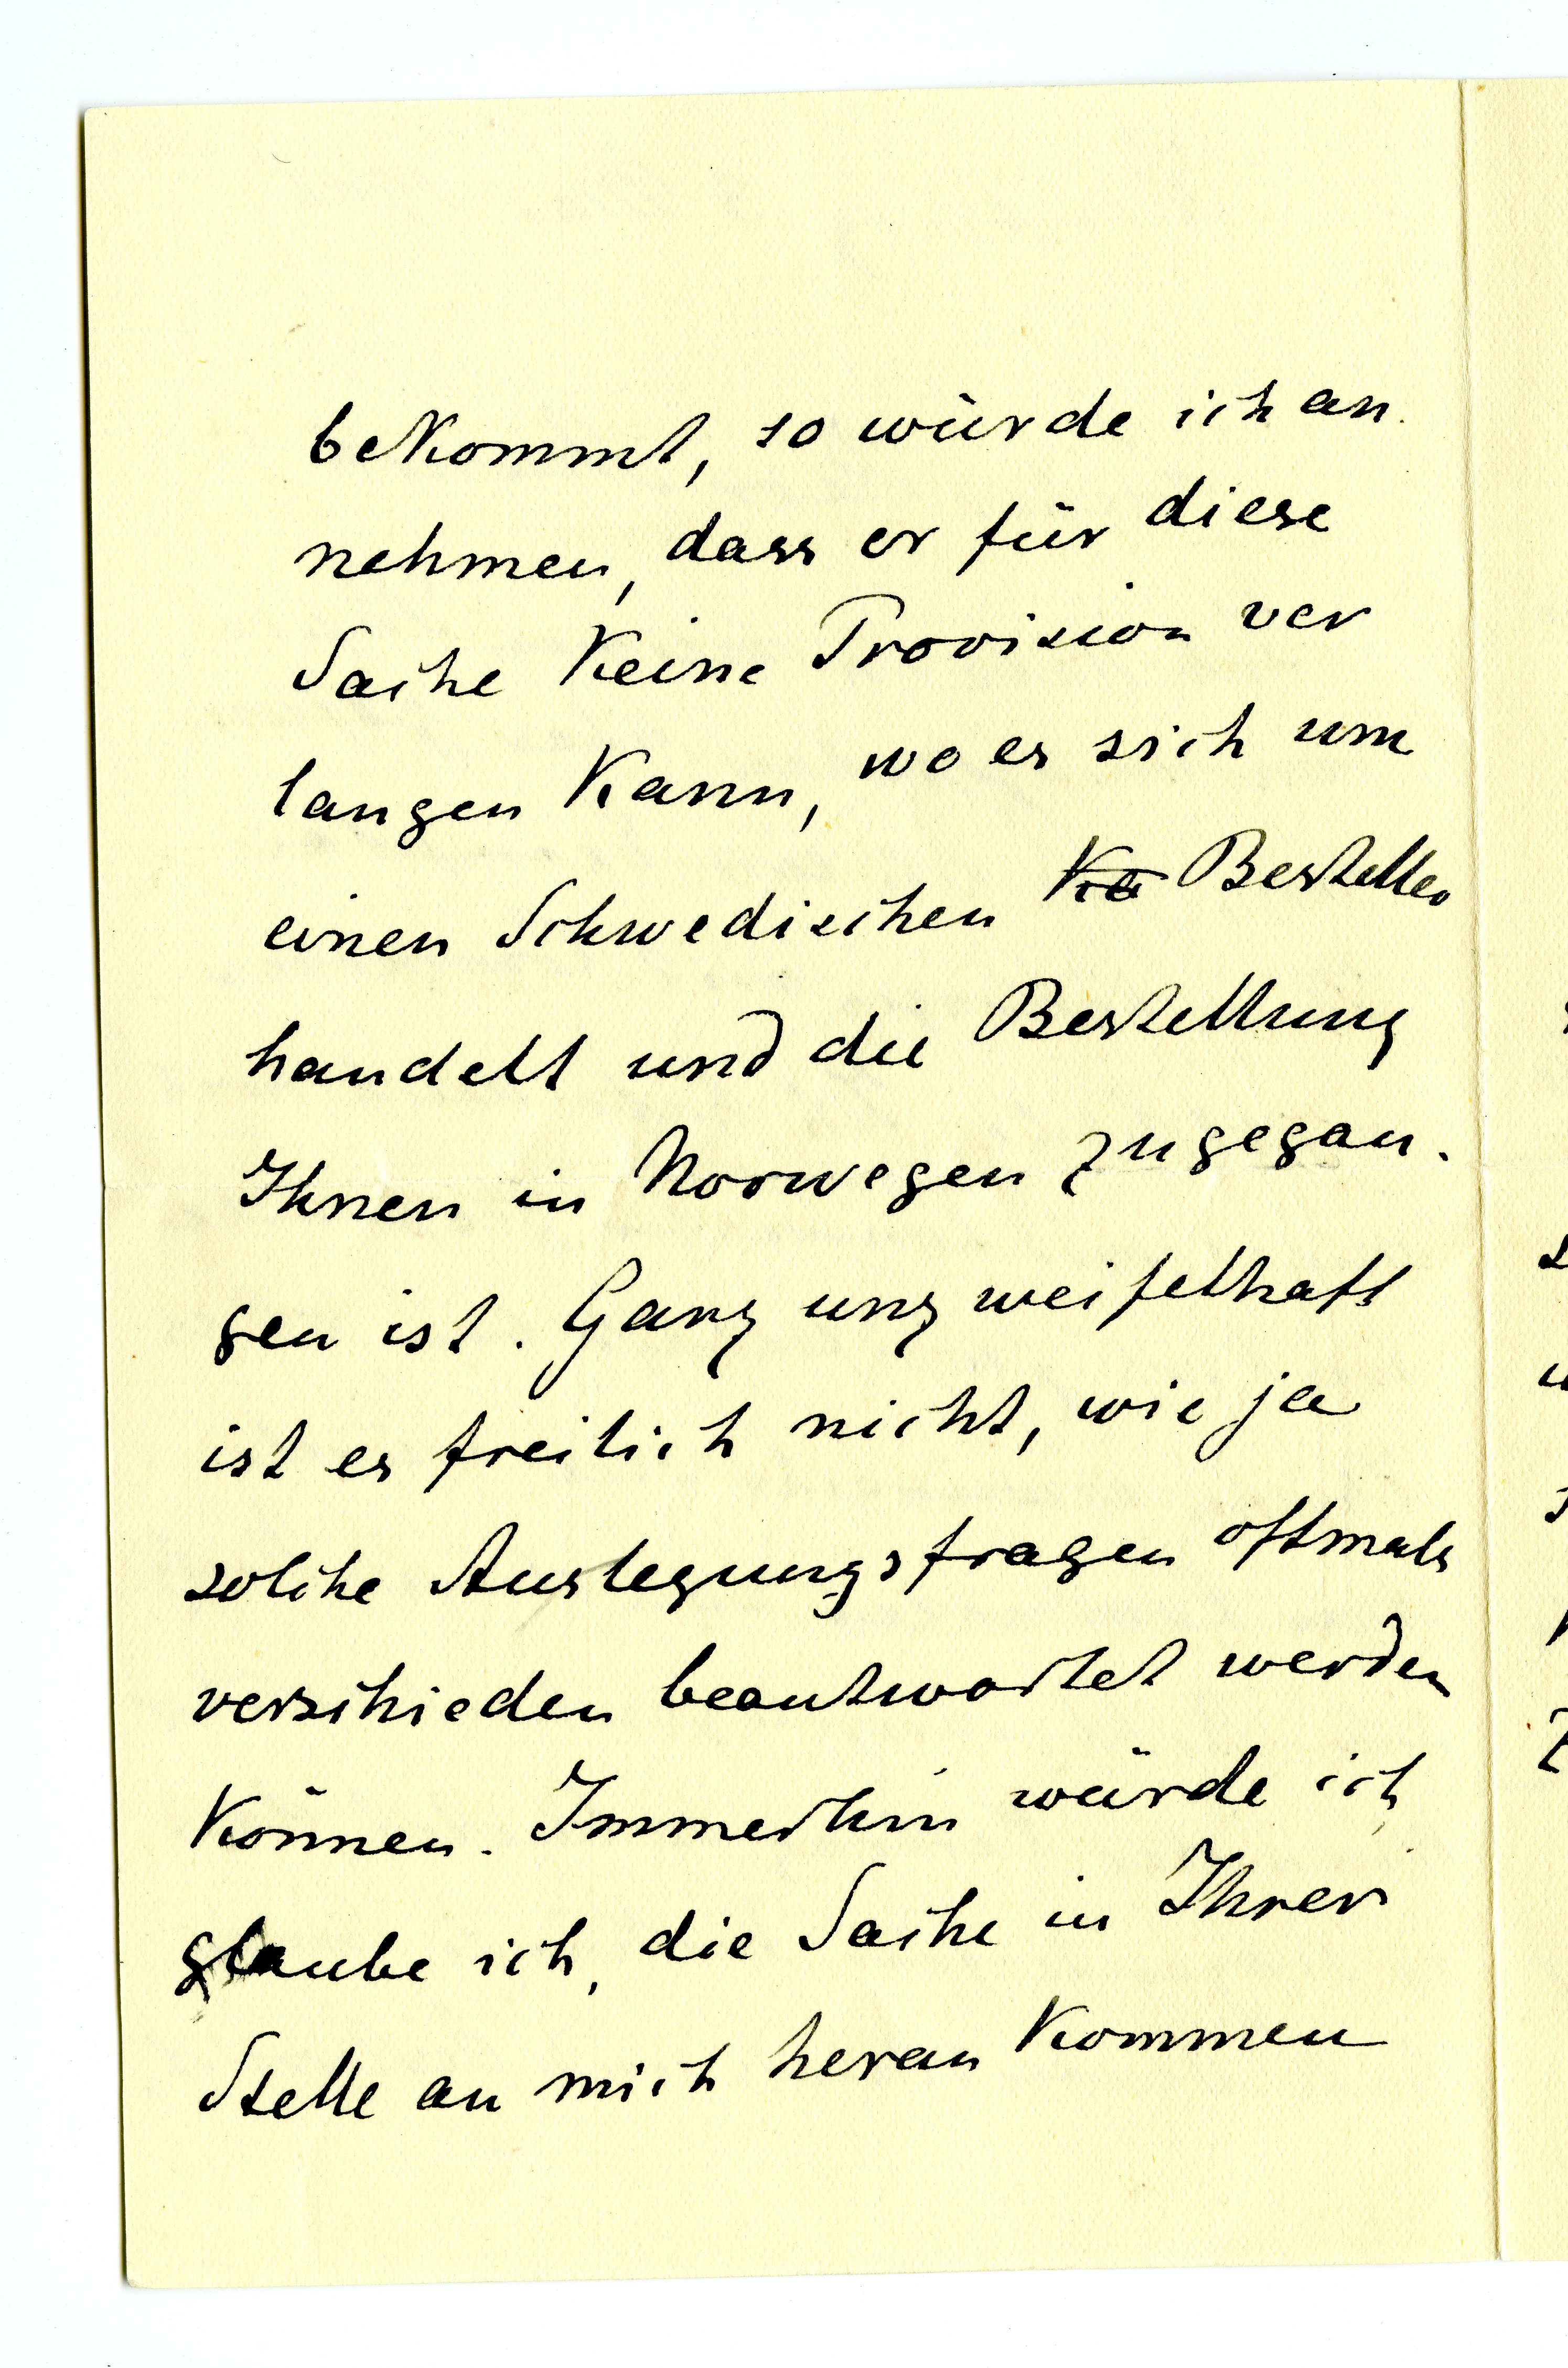 bekommt, so würde ich an-
nehmen, dass er für diese
Sache keine Provision ver
langen kann, wo es sich um
einen Schwedischen Ke Besteller
handelt und die Bestellung
Ihnen in Norwegen zugegan-
gen ist. Ganz unzweifelhaft
ist es freilich nicht, wie ja
solche Auslegungsfragen oftmals
verschieden beantwortet werden
können. Immerhin würde ich
glaube ich, die Sache in Ihrer
Stelle an mich heran kommen